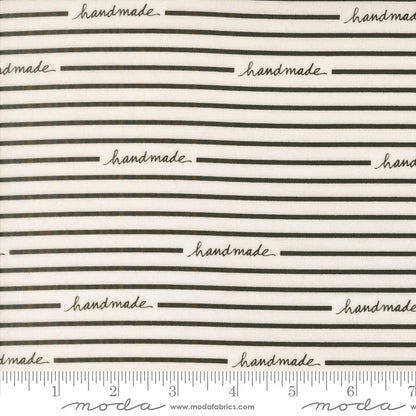 handmade handmade
ndmade handmade
handmade hand
handmade
handmade handmade
ndmade handmade
1 2 3 4 5 6 7
moda www.modafabrics.com moda